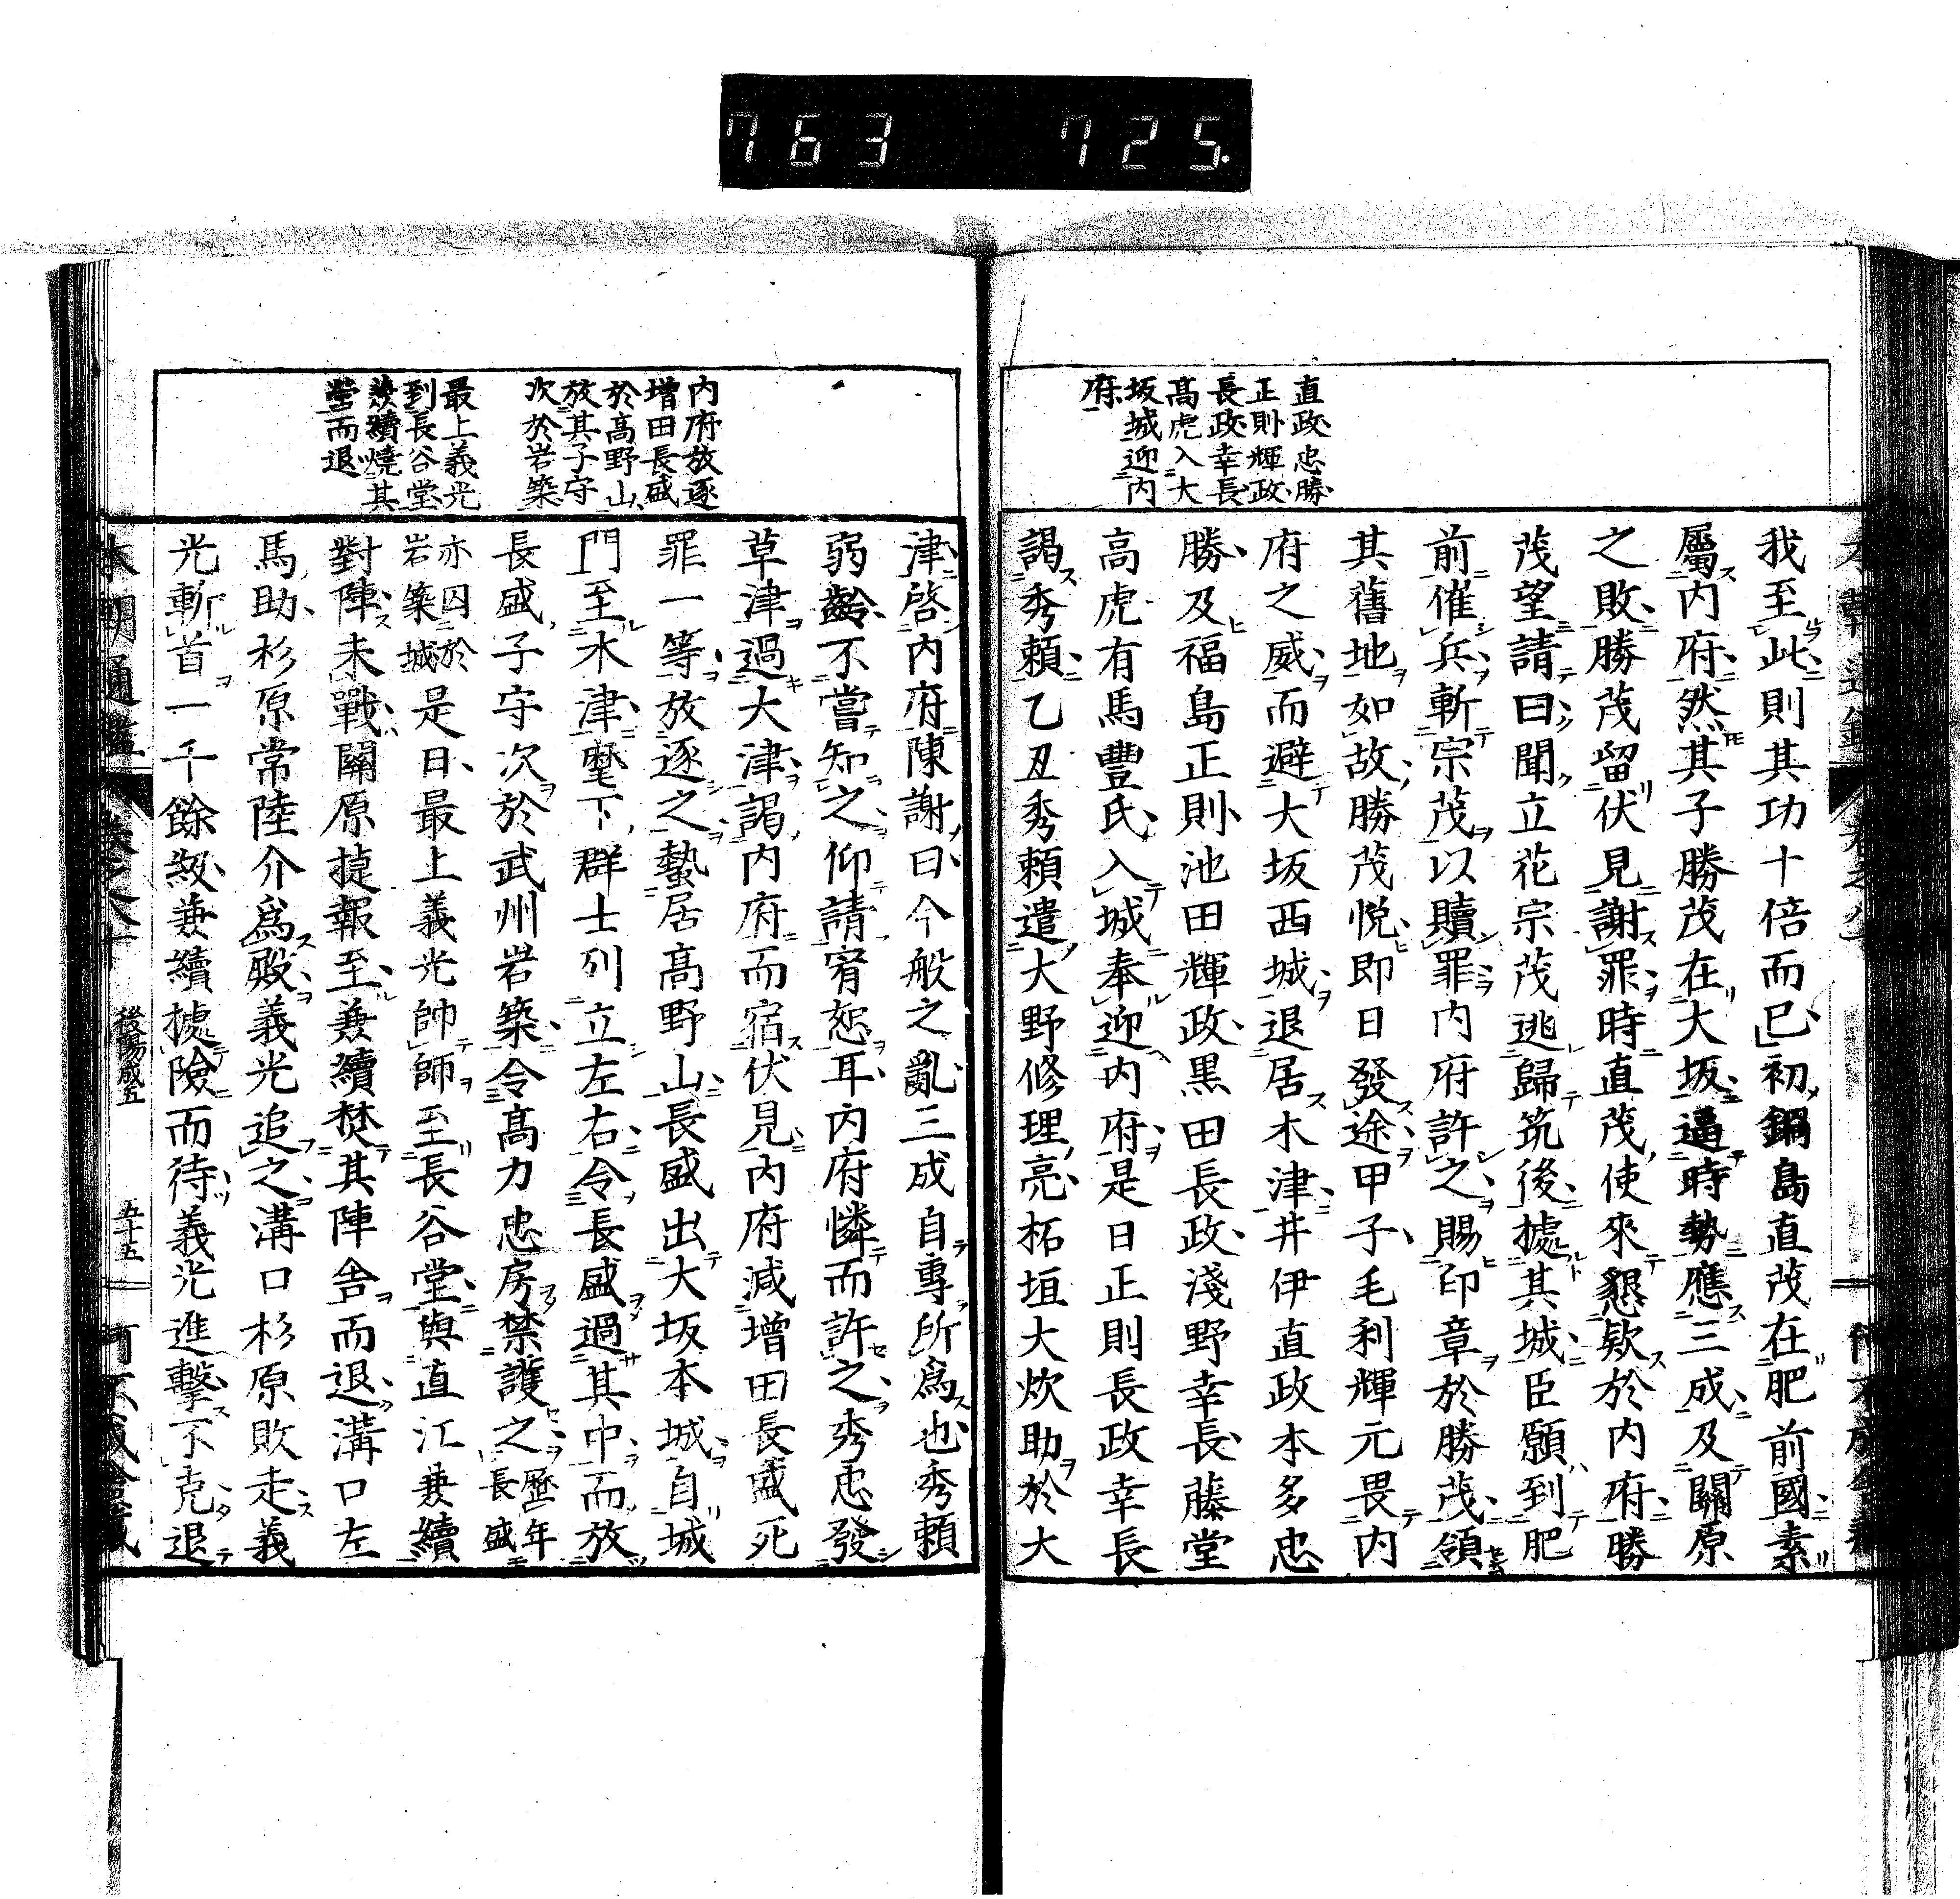 763 725.
直政忠勝
正則輝政
長政幸長
高虎入大
坂城迎内
府
我至此則其功十倍而已初鍋島直茂在肥前國素
屬内府然其子勝茂在大坂逼時勢應三成及關原
之敗勝茂留伏見謝罪時直茂使來懇欵於内府勝
茂望請曰聞立花宗茂逃歸筑後據其城臣願到肥
前催兵斬宗茂以贖罪内府許之賜印章於勝茂領
其舊地如故勝茂悦即日發途甲子毛利輝元畏内
府之威而避大坂西城退居木津井伊直政本多忠
勝及福島正則池田輝政黒田長政淺野幸長藤堂
高虎有馬豐氏入城奉迎内府是日正則長政幸長
謁秀頼乙丑秀頼遣大野修理亮柘垣大炊助於大
内府放逐
増田長盛
於高野山
放其子守
次於岩築
最上義光
到長谷堂
兼續燒其
營而退
津啓内府陳謝曰今般之亂三成自專所爲也秀頼
弱齡不嘗知之仰請宥恕耳内府憐而許之秀忠發
草津過大津謁内府而宿伏見内府減増田長盛死
罪一等放逐之蟄居高野山長盛出大坂本城自城
門至木津麾下群士列立左右令長盛過其中而放
長盛子守次於武州岩築令高力忠房禁護之歷年長盛
亦囚於岩築城是日最上義光帥師至長谷堂與直江兼續
對陣未戰關原捷報至兼續焚其陣舎而退溝口左
馬助杉原常陸介爲殿義光追之溝口杉原敗走義
光斬首一千餘級兼續據險而待義光進擊不克退
本朝通鑑
後陽成五
五十五